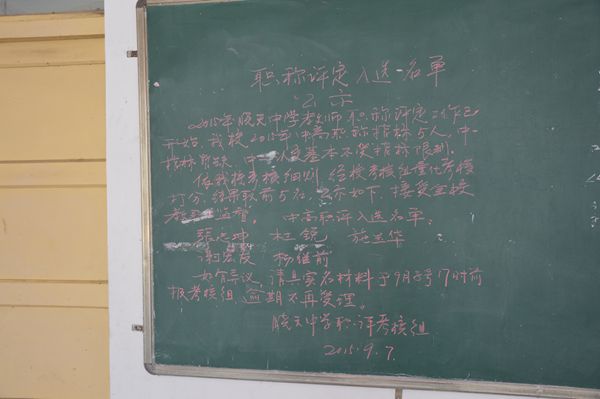 职称评定入选名单
公示
2015年晓天中学教师职称评定工作已
开始,我校2015年中高职称指标5人,中
基本不受指标限制。
依我校考核细则,经校考核组量化考核
打分,结果取前5名,公示如下,接受全校
教师监督。 中高职评入选名单:
张之坤 杜锐 施兰华
谢宏俊 杨继前
如有异议,请具实名材料于9月8号17时前
报考核组,逾期不再受理。
晓天中学职评考核组
2015.9.7.